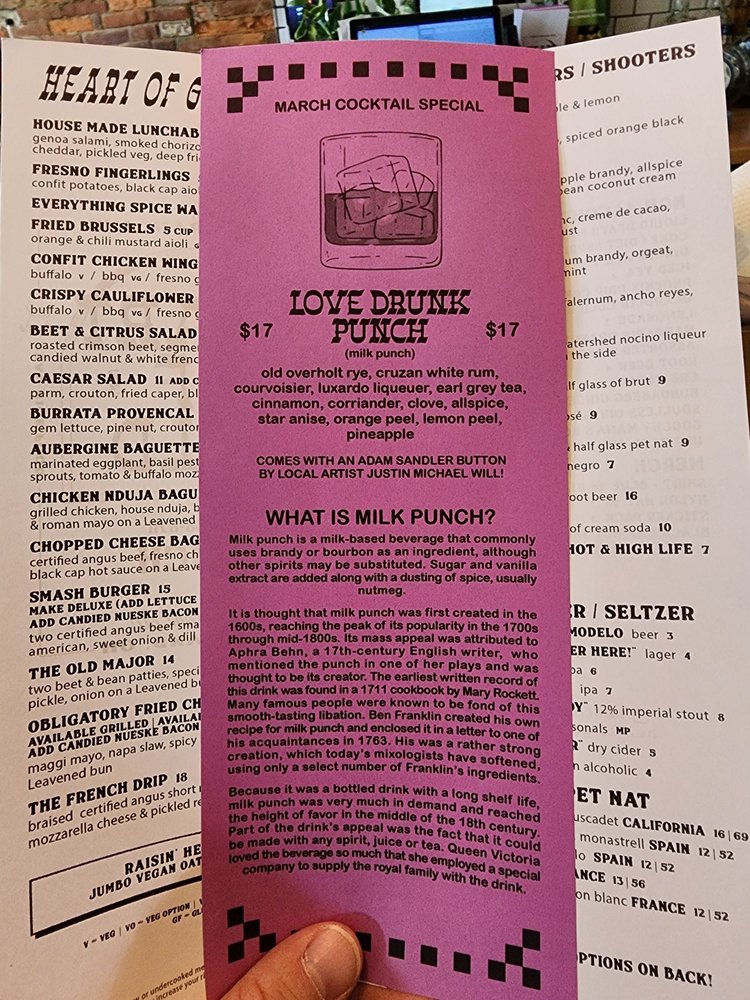 HEART OF G
HOUSE MADE LUNCHAB
genoa salami, smoked chorizo
cheddar, pickled veg, deep fri
FRESNO FINGERLINGS
confit potatoes, black cap aio
EVERYTHING SPICE WA
FRIED BRUSSELS 5 CUP
orange & chili mustard aioli
CONFIT CHICKEN WING
buffalo v / bbq vg / fresno g
CRISPY CAULIFLOWER
buffalo v / bbq vg / fresno g
BEET & CITRUS SALAD
roasted crimson beet, segme
candied walnut & white frenc
CAESAR SALAD 11 ADD C
parm, crouton, fried caper, bl
BURRATA PROVENCAL
gem lettuce, pine nut, crouton
AUBERGINE BAGUETTE
marinated eggplant, basil pest
sprouts, tomato & buffalo moz
CHICKEN NDUJA BAGU
grilled chicken, house nduja, b
& roman mayo on a Leavened
CHOPPED CHEESE BAG
certified angus beef, fresno ch
black cap hot sauce on a Leave
SMASH BURGER 15
MAKE DELUXE (ADD LETTUCE
ADD CANDIED NUESKE BACON
two certified angus beef sma
american, sweet onion & dill
THE OLD MAJOR 14
two beet & bean patties, speci
pickle, onion on a Leavened bu
OBLIGATORY FRIED CH
AVAILABLE GRILLED | AVAILA
ADD CANDIED NUESKE BACON
maggi mayo, napa slaw, spicy
Leavened bun
THE FRENCH DRIP 18
braised certified angus short r
mozzarella cheese & pickled re
RAISIN' HE
JUMBO VEGAN OAT
V - VEG | VO - VEG OPTION | V
GF - GL
y or undercooked me
increase your r
MARCH COCKTAIL SPECIAL
LOVE DRUNK
$17 PUNCH $17
(milk punch)
old overholt rye, cruzan white rum,
courvoisier, luxardo liqueuer, earl grey tea,
cinnamon, corriander, clove, allspice,
star anise, orange peel, lemon peel,
pineapple
COMES WITH AN ADAM SANDLER BUTTON
BY LOCAL ARTIST JUSTIN MICHAEL WILL!
WHAT IS MILK PUNCH?
Milk punch is a milk-based beverage that commonly
uses brandy or bourbon as an ingredient, although
other spirits may be substituted. Sugar and vanilla
extract are added along with a dusting of spice, usually
nutmeg.
It is thought that milk punch was first created in the
1600s, reaching the peak of its popularity in the 1700s
through mid-1800s. Its mass appeal was attributed to
Aphra Behn, a 17th-century English writer, who
mentioned the punch in one of her plays and was
thought to be its creator. The earliest written record of
this drink was found in a 1711 cookbook by Mary Rockett.
Many famous people were known to be fond of this
smooth-tasting libation. Ben Franklin created his own
recipe for milk punch and enclosed it in a letter to one of
his acquaintances in 1763. His was a rather strong
creation, which today's mixologists have softened,
using only a select number of Franklin's ingredients.
Because it was a bottled drink with a long shelf life,
milk punch was very much in demand and reached
the height of favor in the middle of the 18th century.
Part of the drink's appeal was the fact that it could
be made with any spirit, juice or tea. Queen Victoria
loved the beverage so much that she employed a special
company to supply the royal family with the drink.
RS / SHOOTERS
le & lemon
, spiced orange black
pple brandy, allspice
ean coconut cream
nc, creme de cacao,
ust
um brandy, orgeat,
mint
falernum, ancho reyes,
atershed nocino liqueur
the side
lf glass of brut 9
sé 9
half glass pet nat 9
negro 7
oot beer 16
of cream soda 10
HOT & HIGH LIFE 7
ER / SELTZER
MODELO beer 3
ER HERE!" lager 4
pa 6
ipa 7
OY" 12% imperial stout 8
sonals MP
R" dry cider 5
n alcoholic 4
PET NAT
uscadet CALIFORNIA 16|69
monastrell SPAIN 12|52
lo SPAIN 12|52
ANCE 13|56
on blanc FRANCE 12|52
PTIONS ON BACK!